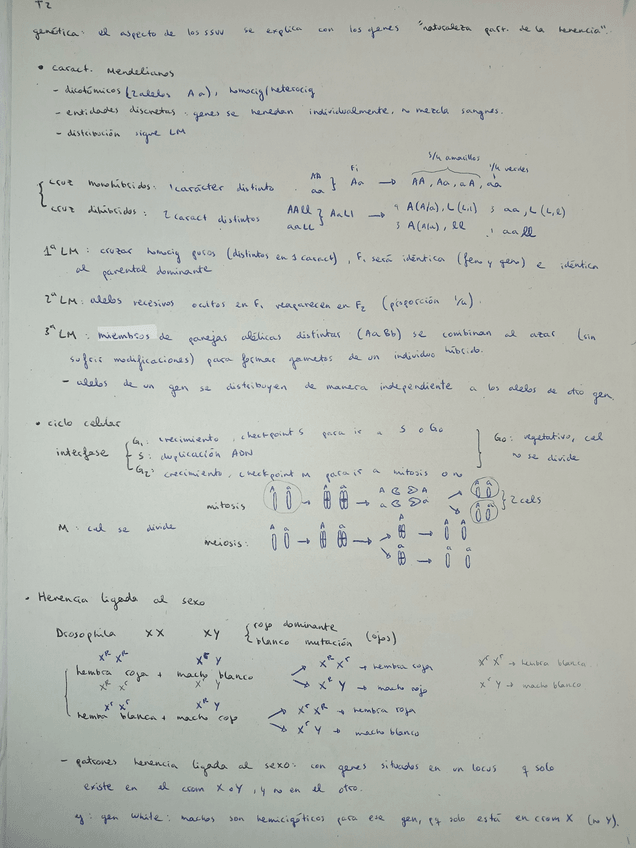 T2
genética: el aspecto de los ssvv se explica con los genes "naturaleza part. de la herencia".
• caract. Mendelianos
- dicotómicos (2 alelos A a), homocig/heterocig
- entidades discretas: genes se heredan individualmente, no mezcla sangres.
- distribución sigue LM
F1 3/4 amarillos 1/4 verdes
cruz monohíbridos: 1 carácter distinto AA aa } Aa → AA, Aa, aA, aa
cruz dihíbridos: 2 caract distintos AAll aaLL } AaLl → 9 A(A/a), L(L,l) 3 aa, L(L,l)
3 A(A/a), ll 1 aall
1ª LM: cruzar homocig puros (distintos en 1 caract), F1 será idéntica (feno y geno) e idéntica
al parental dominante
2ª LM: alelos recesivos ocultos en F1 reaparecen en F2 (proporción 1/4).
3ª LM: miembros de parejas alélicas distintas (AaBb) se combinan al azar (sin
sufrir modificaciones) para formar gametos de un individuo híbrido.
- alelos de un gen se distribuyen de manera independiente a los alelos de otro gen.
• ciclo celular
G1: crecimiento, checkpoint S para ir a S o G0
interfase S: duplicación ADN
G2: crecimiento, checkpoint M para ir a mitosis o no
G0: vegetativo, cel
no se divide
mitosis A a → A a → A A a a A a A a } 2 cels
M: cel se divide
meiosis: A a → A a → A a → A A a a
• Herencia ligada al sexo
Drosophila XX XY { rojo dominante
blanco mutación (ojos)
X^R X^R X^r Y
hembra roja + macho blanco → X^R X^r → hembra roja X^r X^r → hembra blanca
X^R X^r X^r Y → X^R Y → macho rojo X^r Y → macho blanco
X^r X^r X^R Y
hembra blanca + macho rojo → X^r X^R → hembra roja
→ X^r Y → macho blanco
- patrones herencia ligada al sexo: con genes situados en un locus q solo
existe en el crom X o Y, y no en el otro.
ej: gen white: machos son hemicigóticos para ese gen, pq solo está en crom X (no Y).